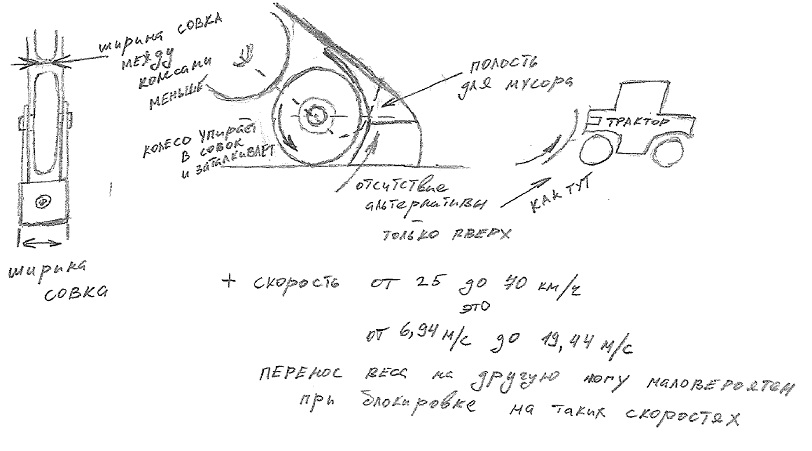 ширина совка
между
колесами
меньше
полость
для мусора
трактор
колесо упирает
в совок
и заталкивает
отсутствие
альтернативы
только вверх
как тут
ширина
совка
+ скорость от 25 до 70 км/ч
это
от 6,94 м/с до 19,44 м/с
перенос веса на другую ногу маловероятен
при блокировке на таких скоростях